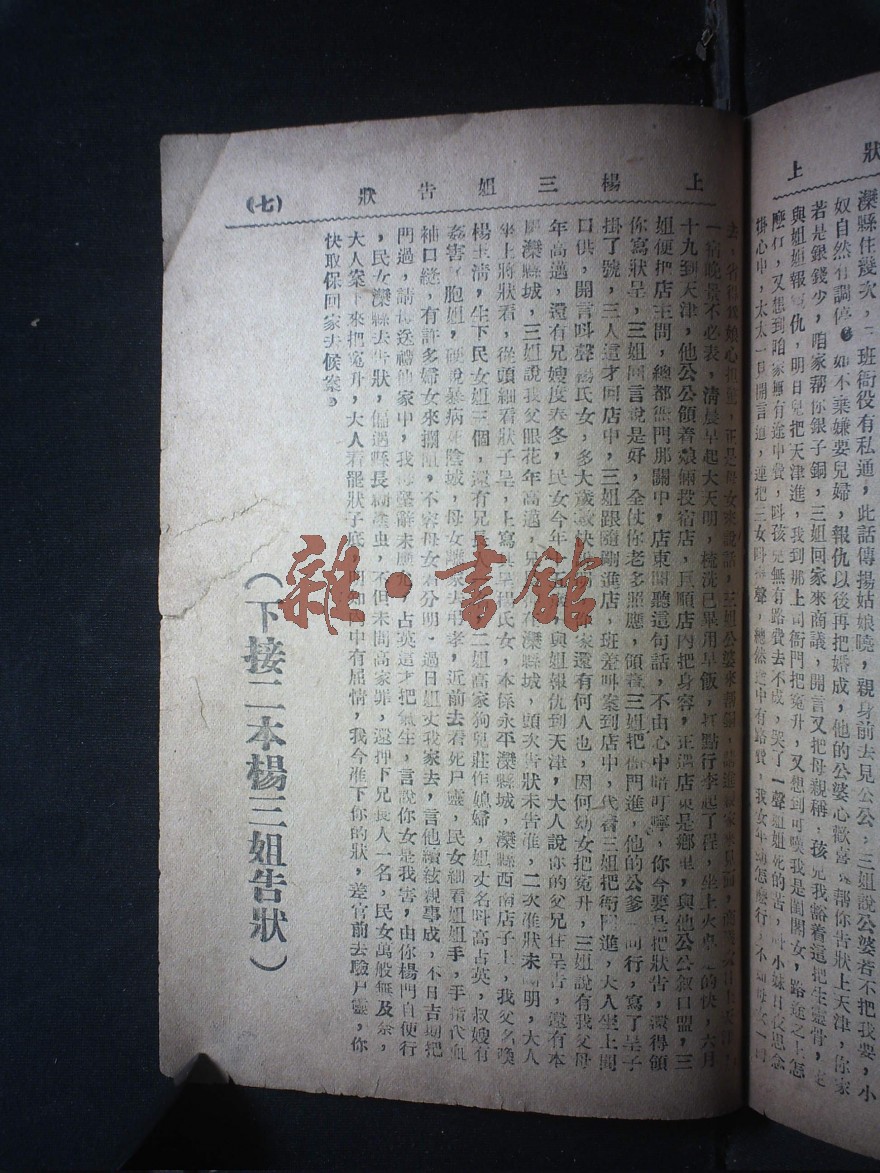 狀 上
灤縣住幾次,三班衙役有私通,此話傳揚姑娘曉,親身前去見公公,三姐說公婆若不把我要,小
奴自然有調停,如不棄嫌要兒婦,報仇以後再把婚成,他的公婆心歡喜,幫你告狀上天津,你家
若是銀錢少,咱家幫你銀子銅,三姐回家來商議,開言又把母親稱,孩兒我豁着這把生靈骨,
與姐姐報冤仇,明日兒把天津進,我到那上司衙門把冤升,又想到可嘆我是閨閣女,路途之上怎
麼行,又想到咱家無有途中費,叫孩兒無有路費去不成,哭了一聲姐姐死的苦,小妹日夜思念
掛心中,太太一口開言道,連把三女叫一聲,縱然途中有路費,我女年幼怎麼行,
上楊三姐告狀 (七)
去,省得我娘心担驚,正是母女來說話,三姐公婆來帮銅,
一宿晚景不必表,清晨早起大天明,梳洗已畢用早飯,打點行李起了程,坐上火車走的快,六月
十九到天津,他公公領着娘倆投宿店,巨順店內把身容,正遇店東是鄉里,與他公公叙口盟,三
姐便把店主問,總都衙門那闗中,店東聞聽這句話,不由心中暗叮嚀,你今要是把狀告,還得領
你寫狀呈,三姐回言說是好,全仗你老多照應,領着三姐把衙門進,他的公爹同行,寫了呈子
掛了號,三人這才回店中,三姐跟隨剛進店,班差叫案到店中,代着三姐把衙門進,大人坐上問
口供,開言叫聲楊氏女,多大歲數快說,家還有何人也,因何幼女把冤升,三姐說有我父母
年高邁,還有兄嫂度春冬,民女今年,與姐報仇到天津,大人說你的父兄在呈告,還有本
灤縣城,三姐說我父眼花年高邁,兄在灤縣城,頭次告狀未告准,二次准狀未問明,大人
坐上將狀看,從頭細看狀子呈,上寫具呈楊氏女,本係永平灤縣城,灤縣西南店子上,我父名喚
楊玉清,生下民女姐三個,還有兄長,二姐高家狗兒莊作媳婦,姐丈名叫高占英,叔嫂有
姦害了胞姐,硬說暴病死陰城,母女誰來去吊孝,近前去看死尸靈,民女細看姐姐手,手指代血
袖口縫,有許多婦女來攔阻,不容母女看分明,過日姐丈我家去,言他續絃親事成,不日吉期把
門過,請母送禮他家中,我母堅辭未應允,占英這才把氣生,言說你女是我害,由你楊門自便行
,民女灤縣去告狀,偏遇縣長糊塗虫,不但未問高家罪,還押下兄長人一名,民女萬般無及奈,
大人案下來把冤升,大人看罷狀子底,中有屈情,我今准下你的狀,差官前去驗尸靈,你
快取保回家去候案。
(下接二本楊三姐告狀)
雜·書館